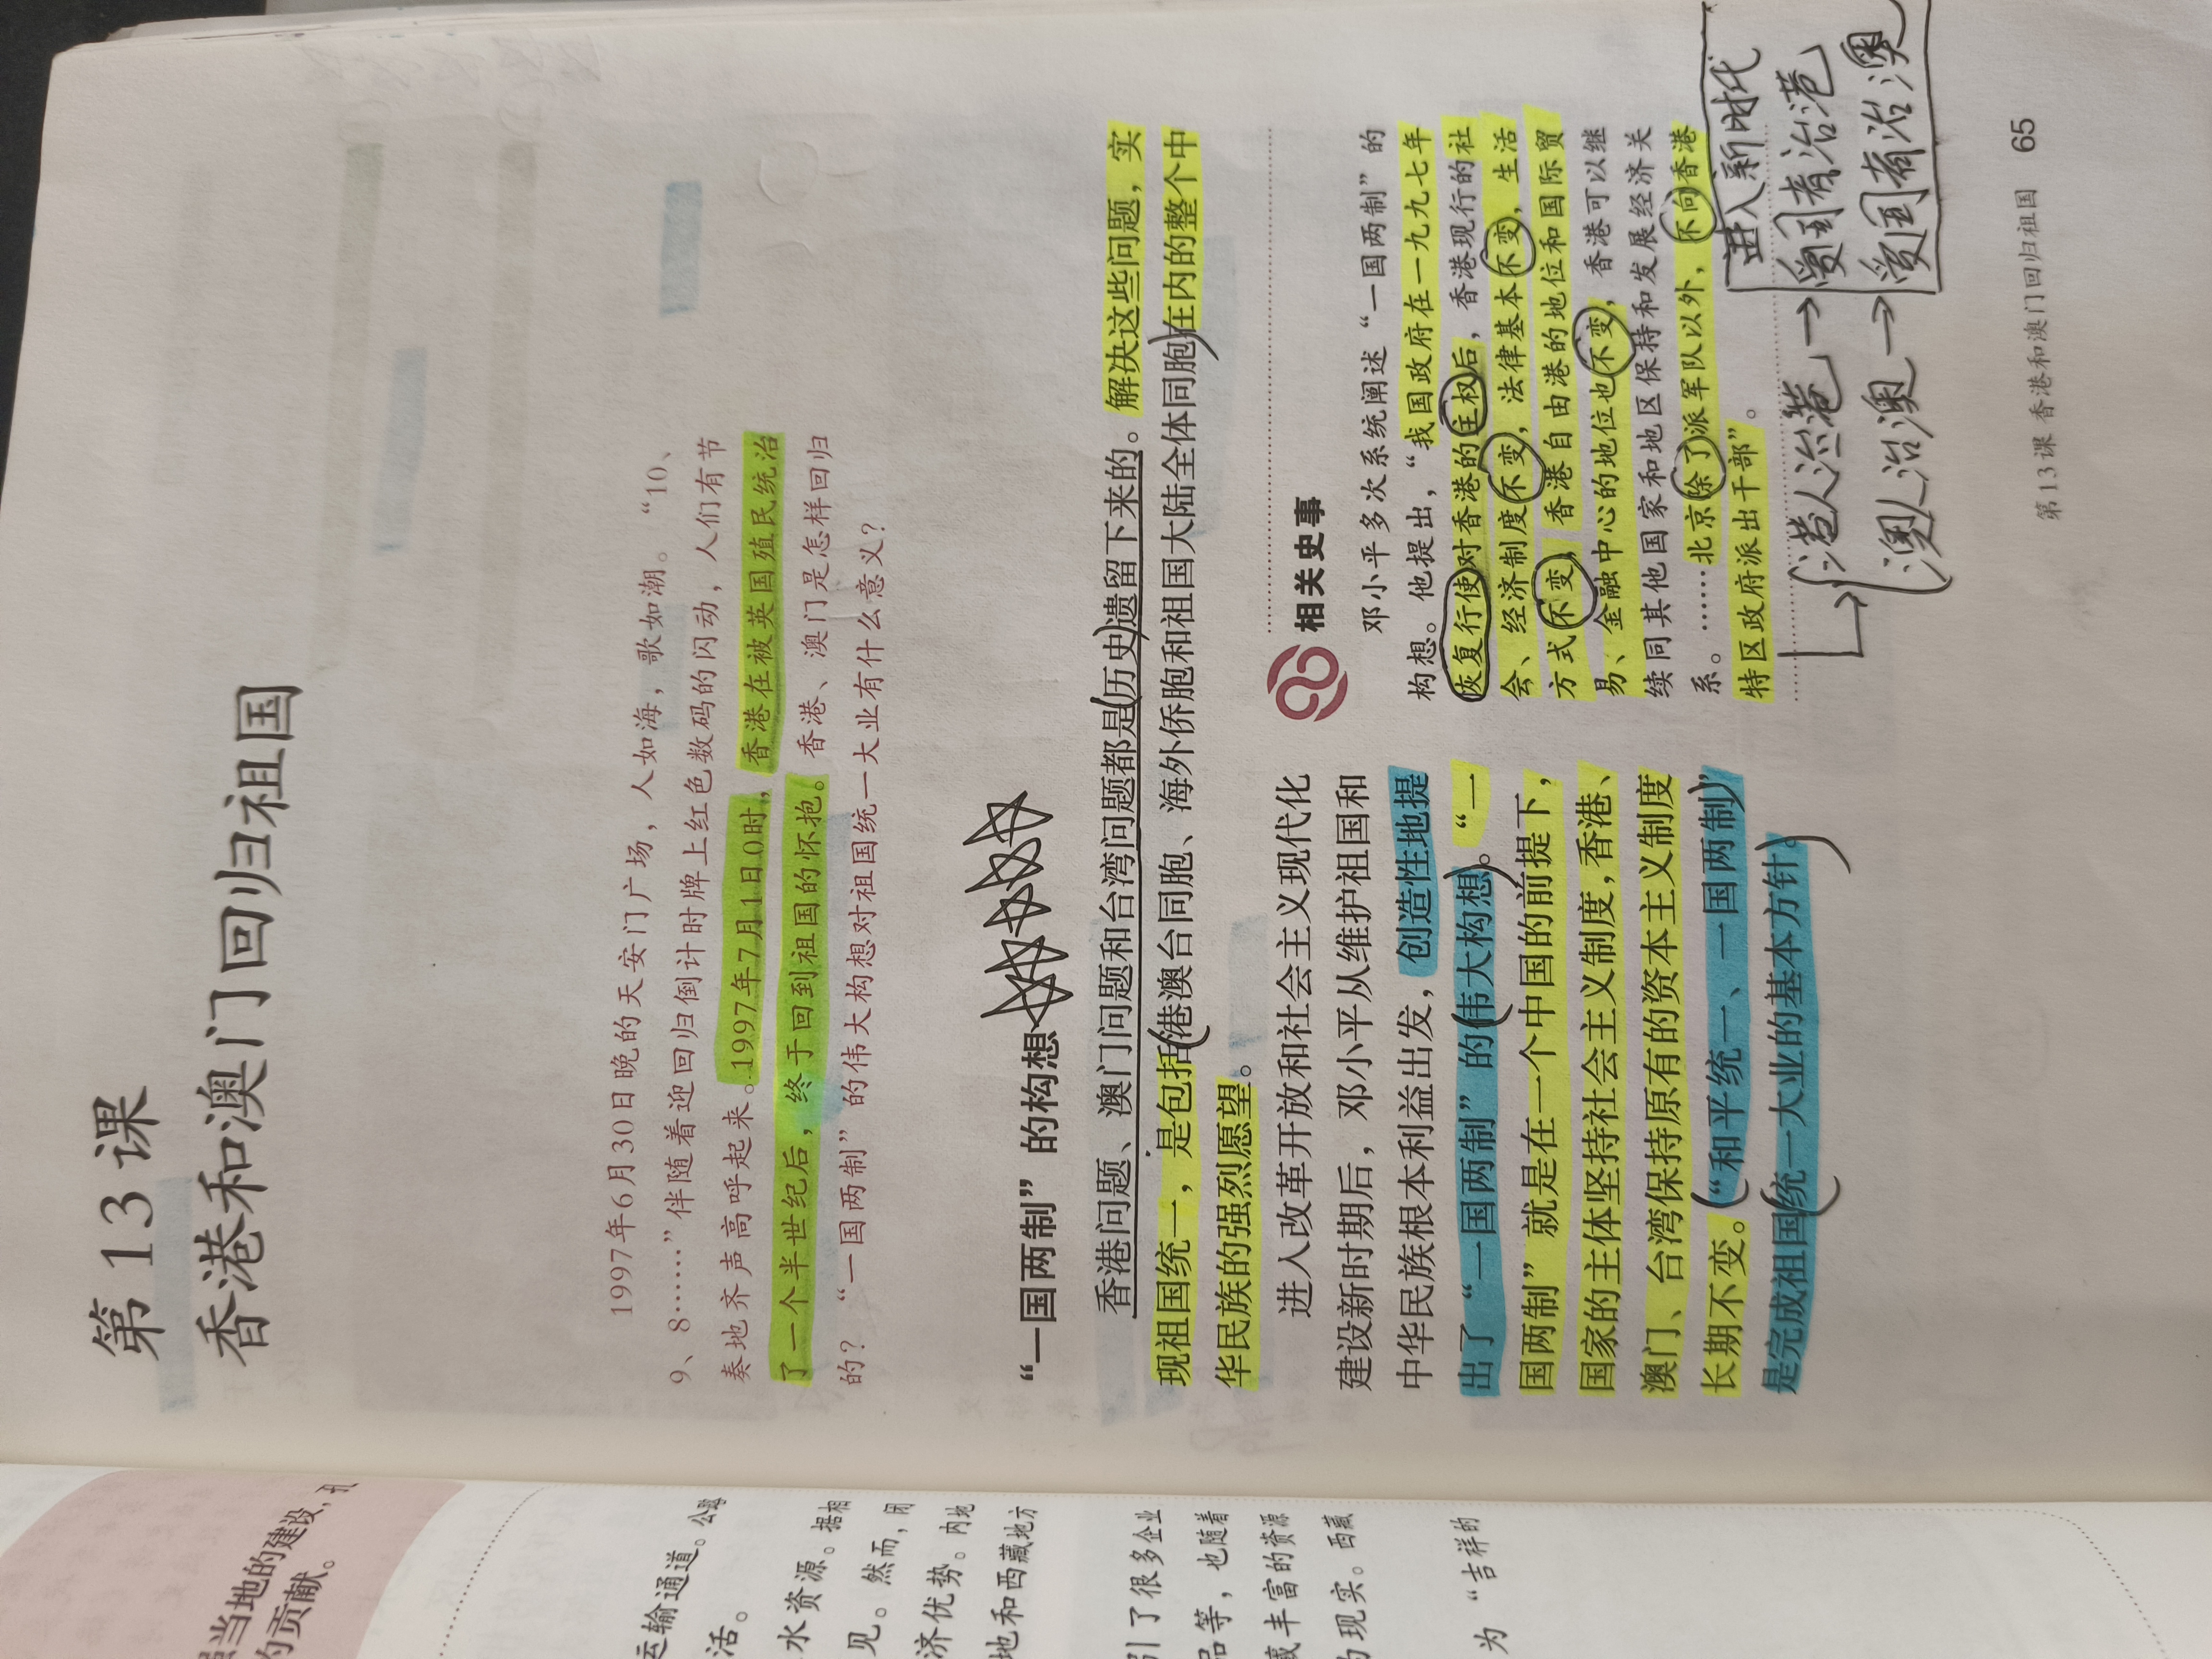 第13课
香港和澳门回归祖国
1997年6月30日晚的天安门广场，人如海，歌如潮。“10、
9、8……”伴随着迎回归倒计时牌上红色数码的闪动，人们有节
奏地齐声高呼起来。1997年7月1日0时，香港在被英国殖民统治
了一个半世纪后，终于回到祖国的怀抱。香港、澳门是怎样回归
的？“一国两制”的伟大构想对祖国统一大业有什么意义？
“一国两制”的构想
香港问题、澳门问题和台湾问题都是历史遗留下来的。解决这些问题，实
现祖国统一，是包括港澳台同胞、海外侨胞和祖国大陆全体同胞在内的整个中
华民族的强烈愿望。
进入改革开放和社会主义现代化
建设新时期后，邓小平从维护祖国和
中华民族根本利益出发，创造性地提
出了“一国两制”的伟大构想。“一
国两制”就是在一个中国的前提下，
国家的主体坚持社会主义制度，香港、
澳门、台湾保持原有的资本主义制度
长期不变。“和平统一、一国两制”
是完成祖国统一大业的基本方针。
相关史事
邓小平多次系统阐述“一国两制”的
构想。他提出，“我国政府在一九九七年
恢复行使对香港的主权后，香港现行的社
会、经济制度不变，法律基本不变，生活
方式不变，香港自由港的地位和国际贸
易、金融中心的地位也不变，香港可以继
续同其他国家和地区保持和发展经济关
系。……北京除了派军队以外，不向香港
特区政府派出干部”。
进入新时代
港人治港→爱国者治港
澳人治澳→爱国者治澳
第13课 香港和澳门回归祖国 65
当地的建设，
的贡献。
运输通道。公路
活。
水资源。据相
见。然而，闭
济优势。内地
地和西藏地方
引了很多企业
品等，也随着
藏丰富的资源
为现实。西藏
为“吉祥的